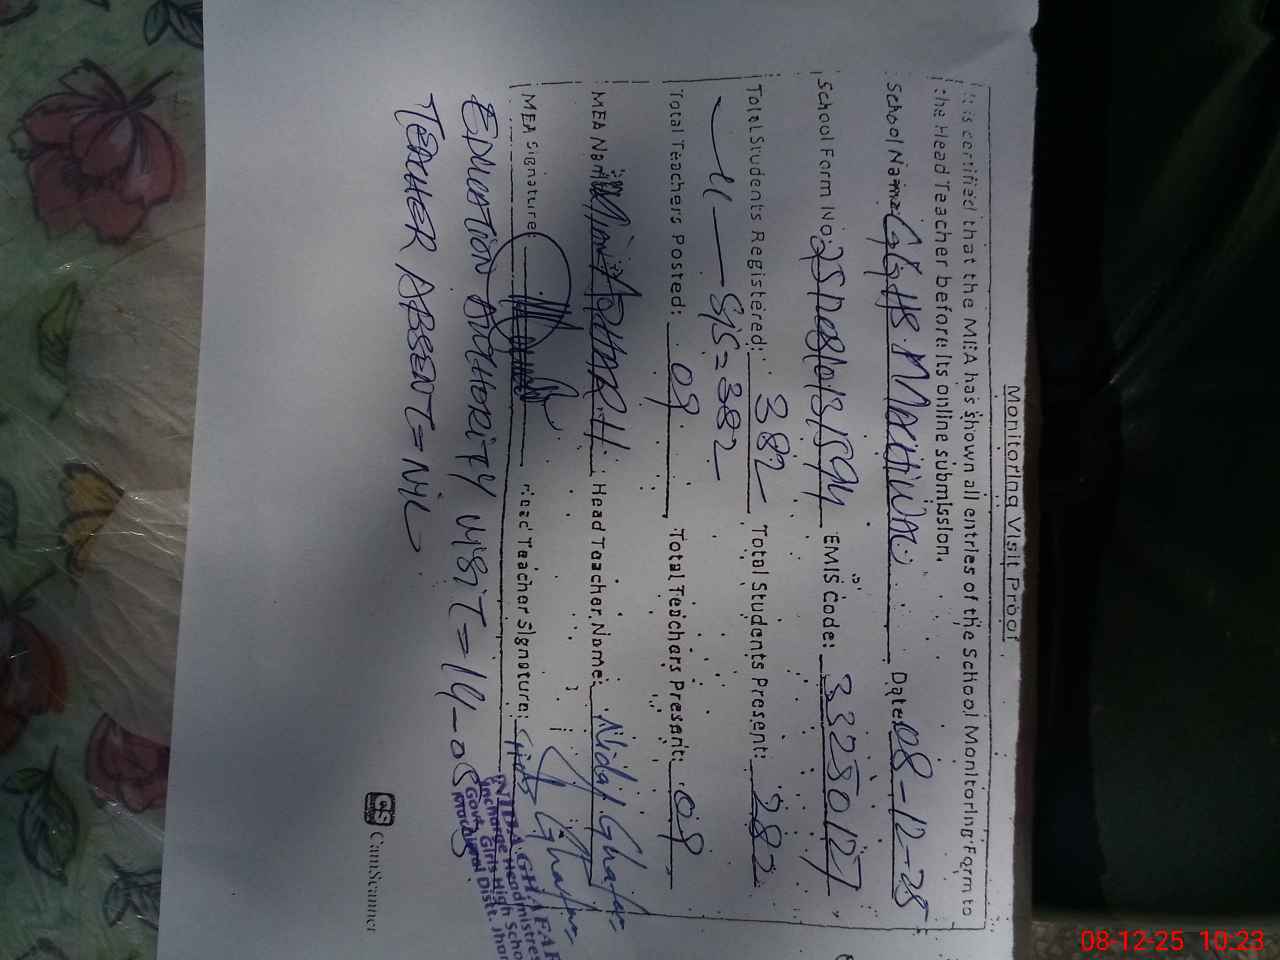 Monitoring Visit Proof
It is certified that the MEA has shown all entries of the School Monitoring Form to
the Head Teacher before its online submission.
School Name: GGHS. MACHIWAL Date: 08-12-25
School Form No: EMIS Code: 33250127
Total Students Registered: 382 Total Students Present: 282
SIS = 382
Total Teachers Posted: 09 Total Teachers Present: 09
MEA Name: Mian ADHAR.H Head Teacher Name: Nida Ghafar
MEA Signature: Head Teacher Signature: Ghafar
EDUCATION AUTHORITY VISIT = 14-05
TEACHER ABSENT = NIL
NIDA GHAFAR
Incharge Headmistres
Govt. Girls High Scho
Distt. Jhan
CS CamScanner
08-12-25 10:23